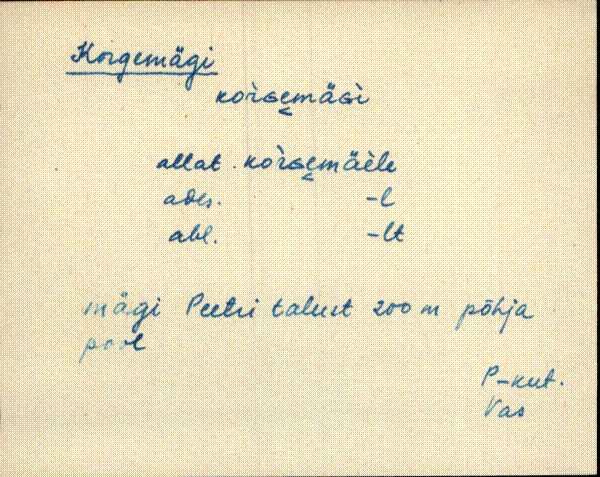 Korgemägi
kor̀ɢemäɢì
allat. kor̀ɢemäèle
ades. -l
abl. -lt
mägi Peetri talust 200 m põhja
pool
P-kut.
Vas